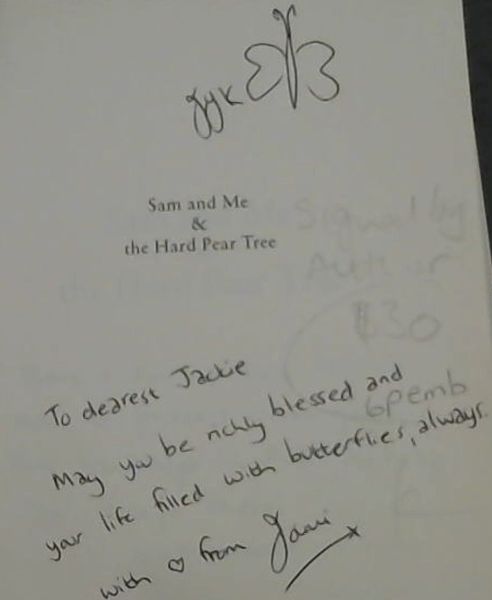 gyk
Sam and Me
&
the Hard Pear Tree
Signed by
Author
$30
6pemb
To dearest Jackie
May you be richly blessed and
your life filled with butterflies, always.
with ♡ from